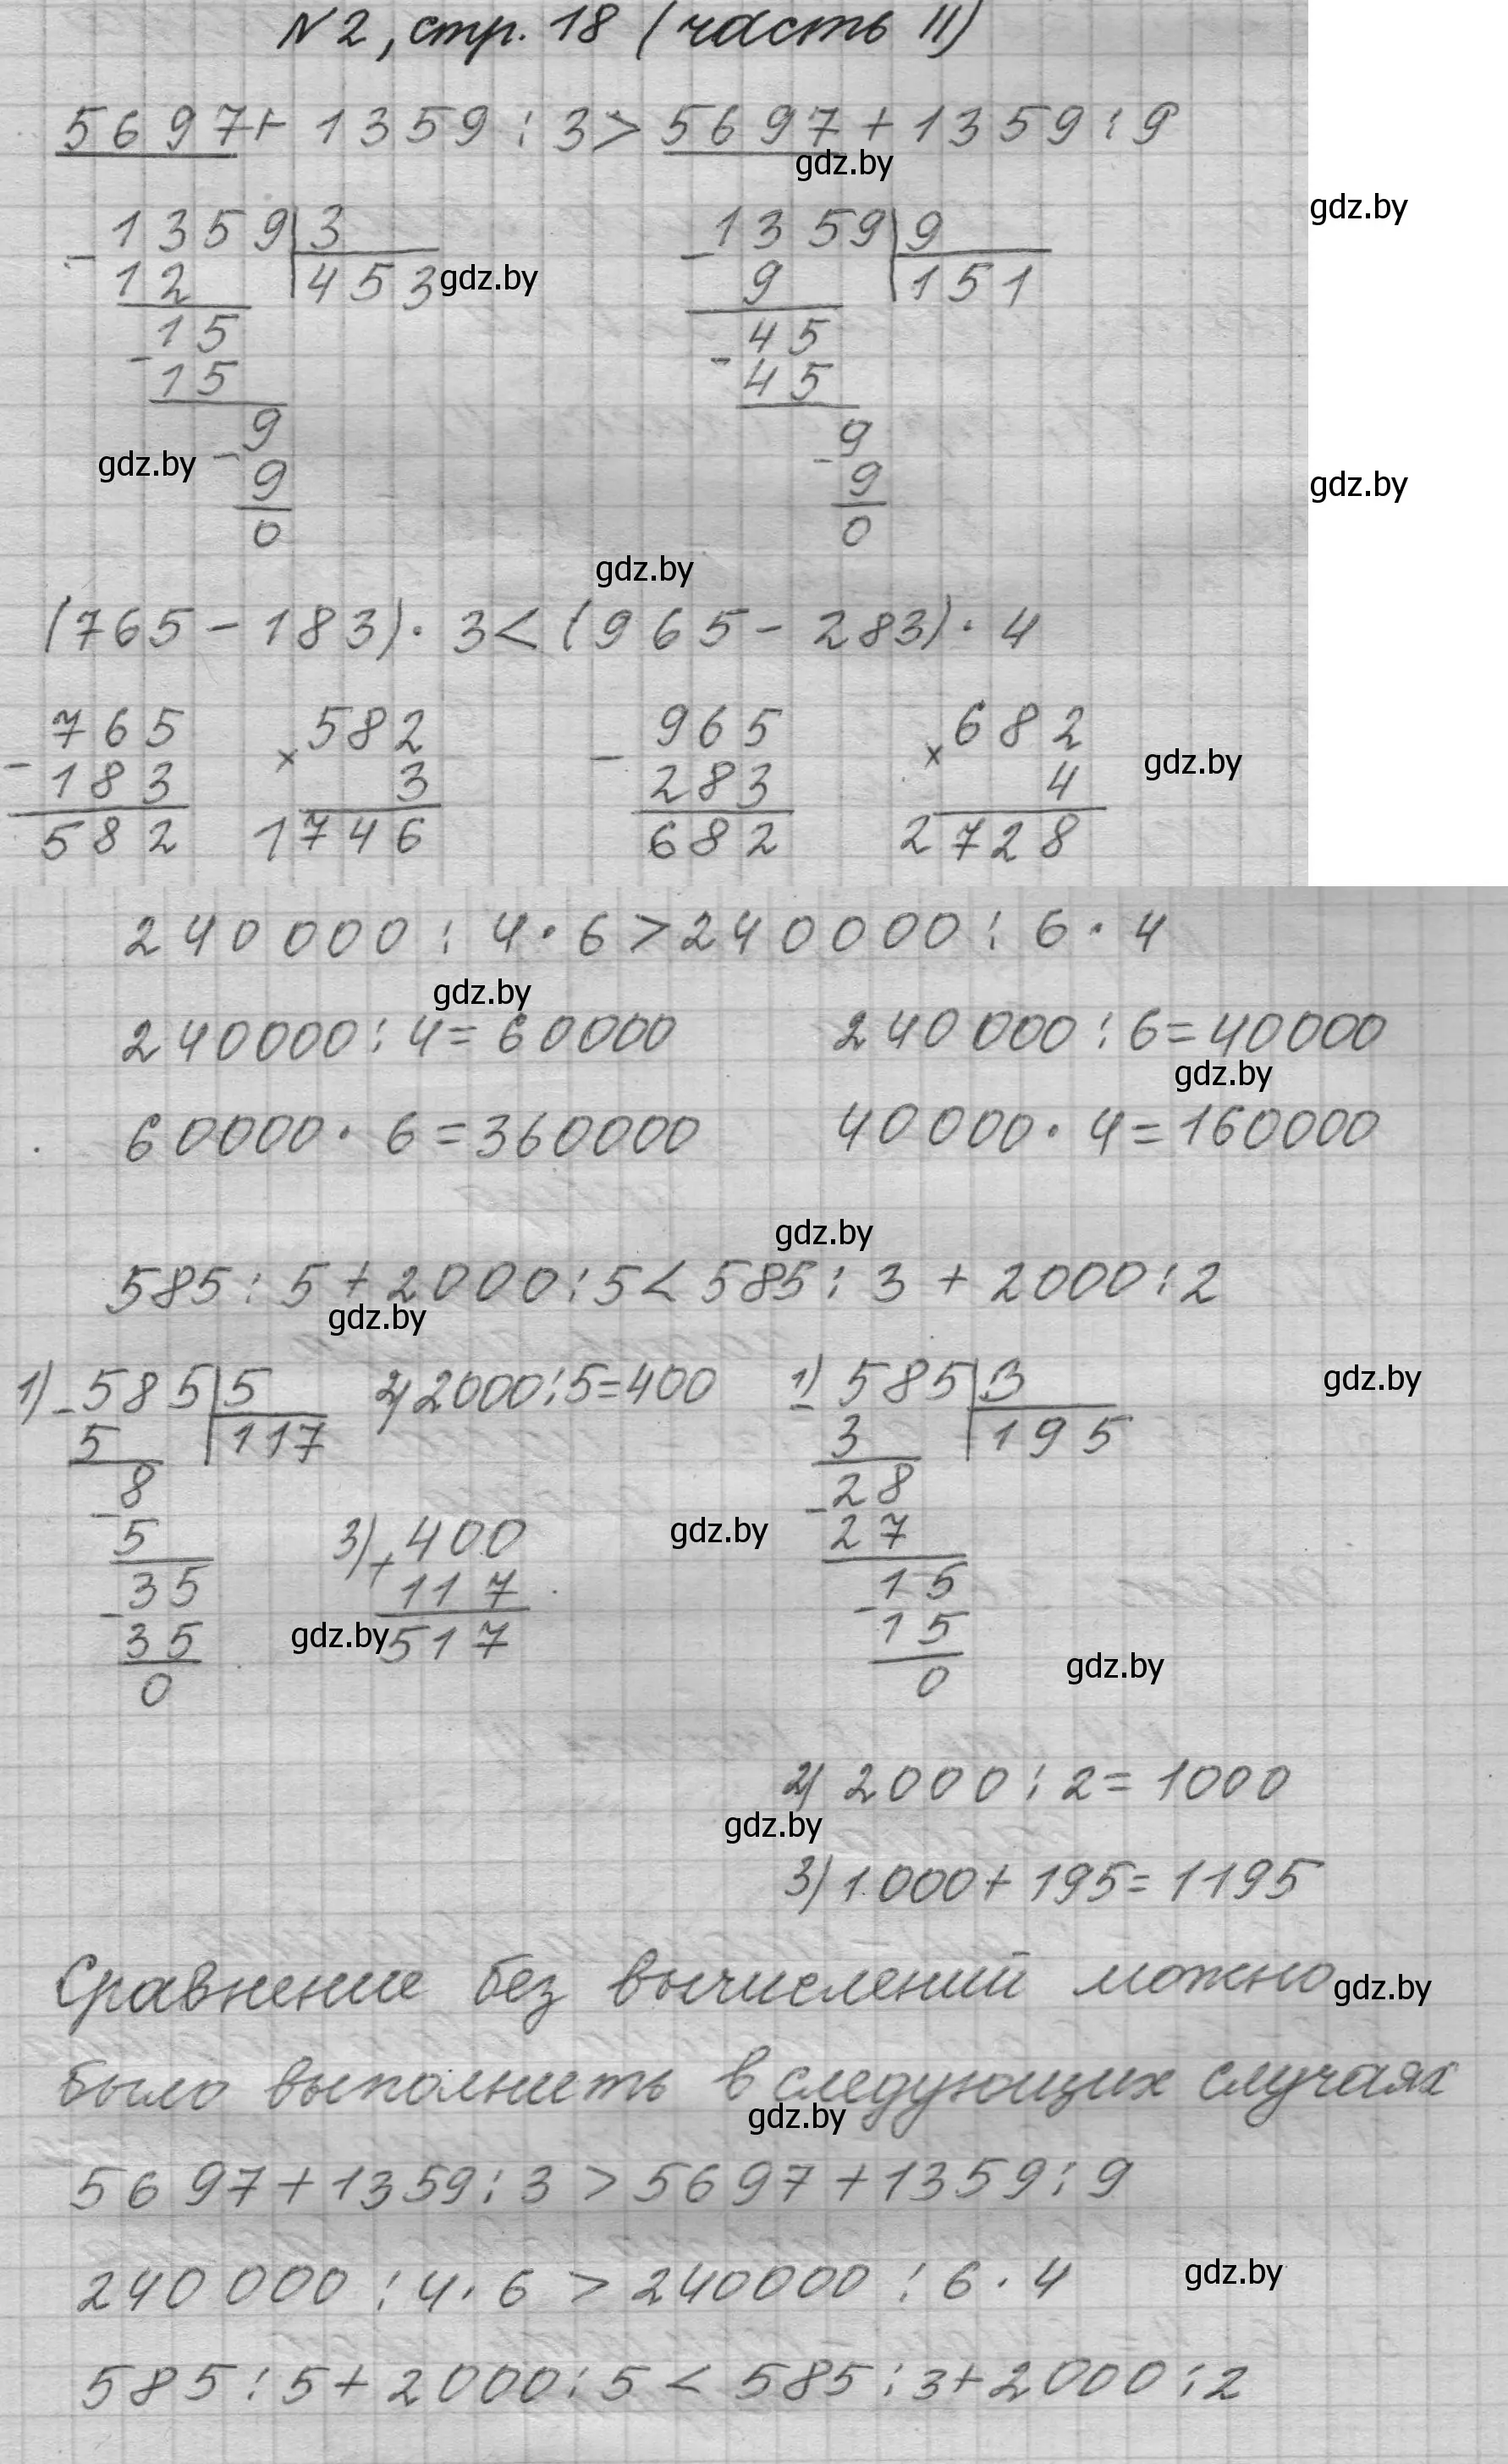 N2, стр. 18 (часть II)
5697 + 1359 : 3 > 5697 + 1359 : 9
gdz.by
gdz.by
- 1359 | 3
12 | 453
gdz.by
- 15
15
- 9
9
0
- 1359 | 9
9 | 151
- 45
45
- 9
9
0
gdz.by
gdz.by
gdz.by
(765 - 183) · 3 < (965 - 283) · 4
- 765
183
582
× 582
3
1746
- 965
283
682
× 682
4
2728
gdz.by
240000 : 4 · 6 > 240000 : 6 · 4
gdz.by
240000 : 4 = 60000
240000 : 6 = 40000
gdz.by
60000 · 6 = 360000
40000 · 4 = 160000
gdz.by
585 : 5 + 2000 : 5 < 585 : 3 + 2000 : 2
gdz.by
1) - 585 | 5
5 | 117
- 8
5
- 35
35
0
2) 2000 : 5 = 400
3) + 400
117
517
gdz.by
1) - 585 | 3
3 | 195
- 28
27
- 15
15
0
gdz.by
gdz.by
gdz.by
2) 2000 : 2 = 1000
gdz.by
3) 1000 + 195 = 1195
Сравнение без вычислений можно
gdz.by
было выполнить в следующих случаях
gdz.by
5697 + 1359 : 3 > 5697 + 1359 : 9
240000 : 4 · 6 > 240000 : 6 · 4
gdz.by
585 : 5 + 2000 : 5 < 585 : 3 + 2000 : 2